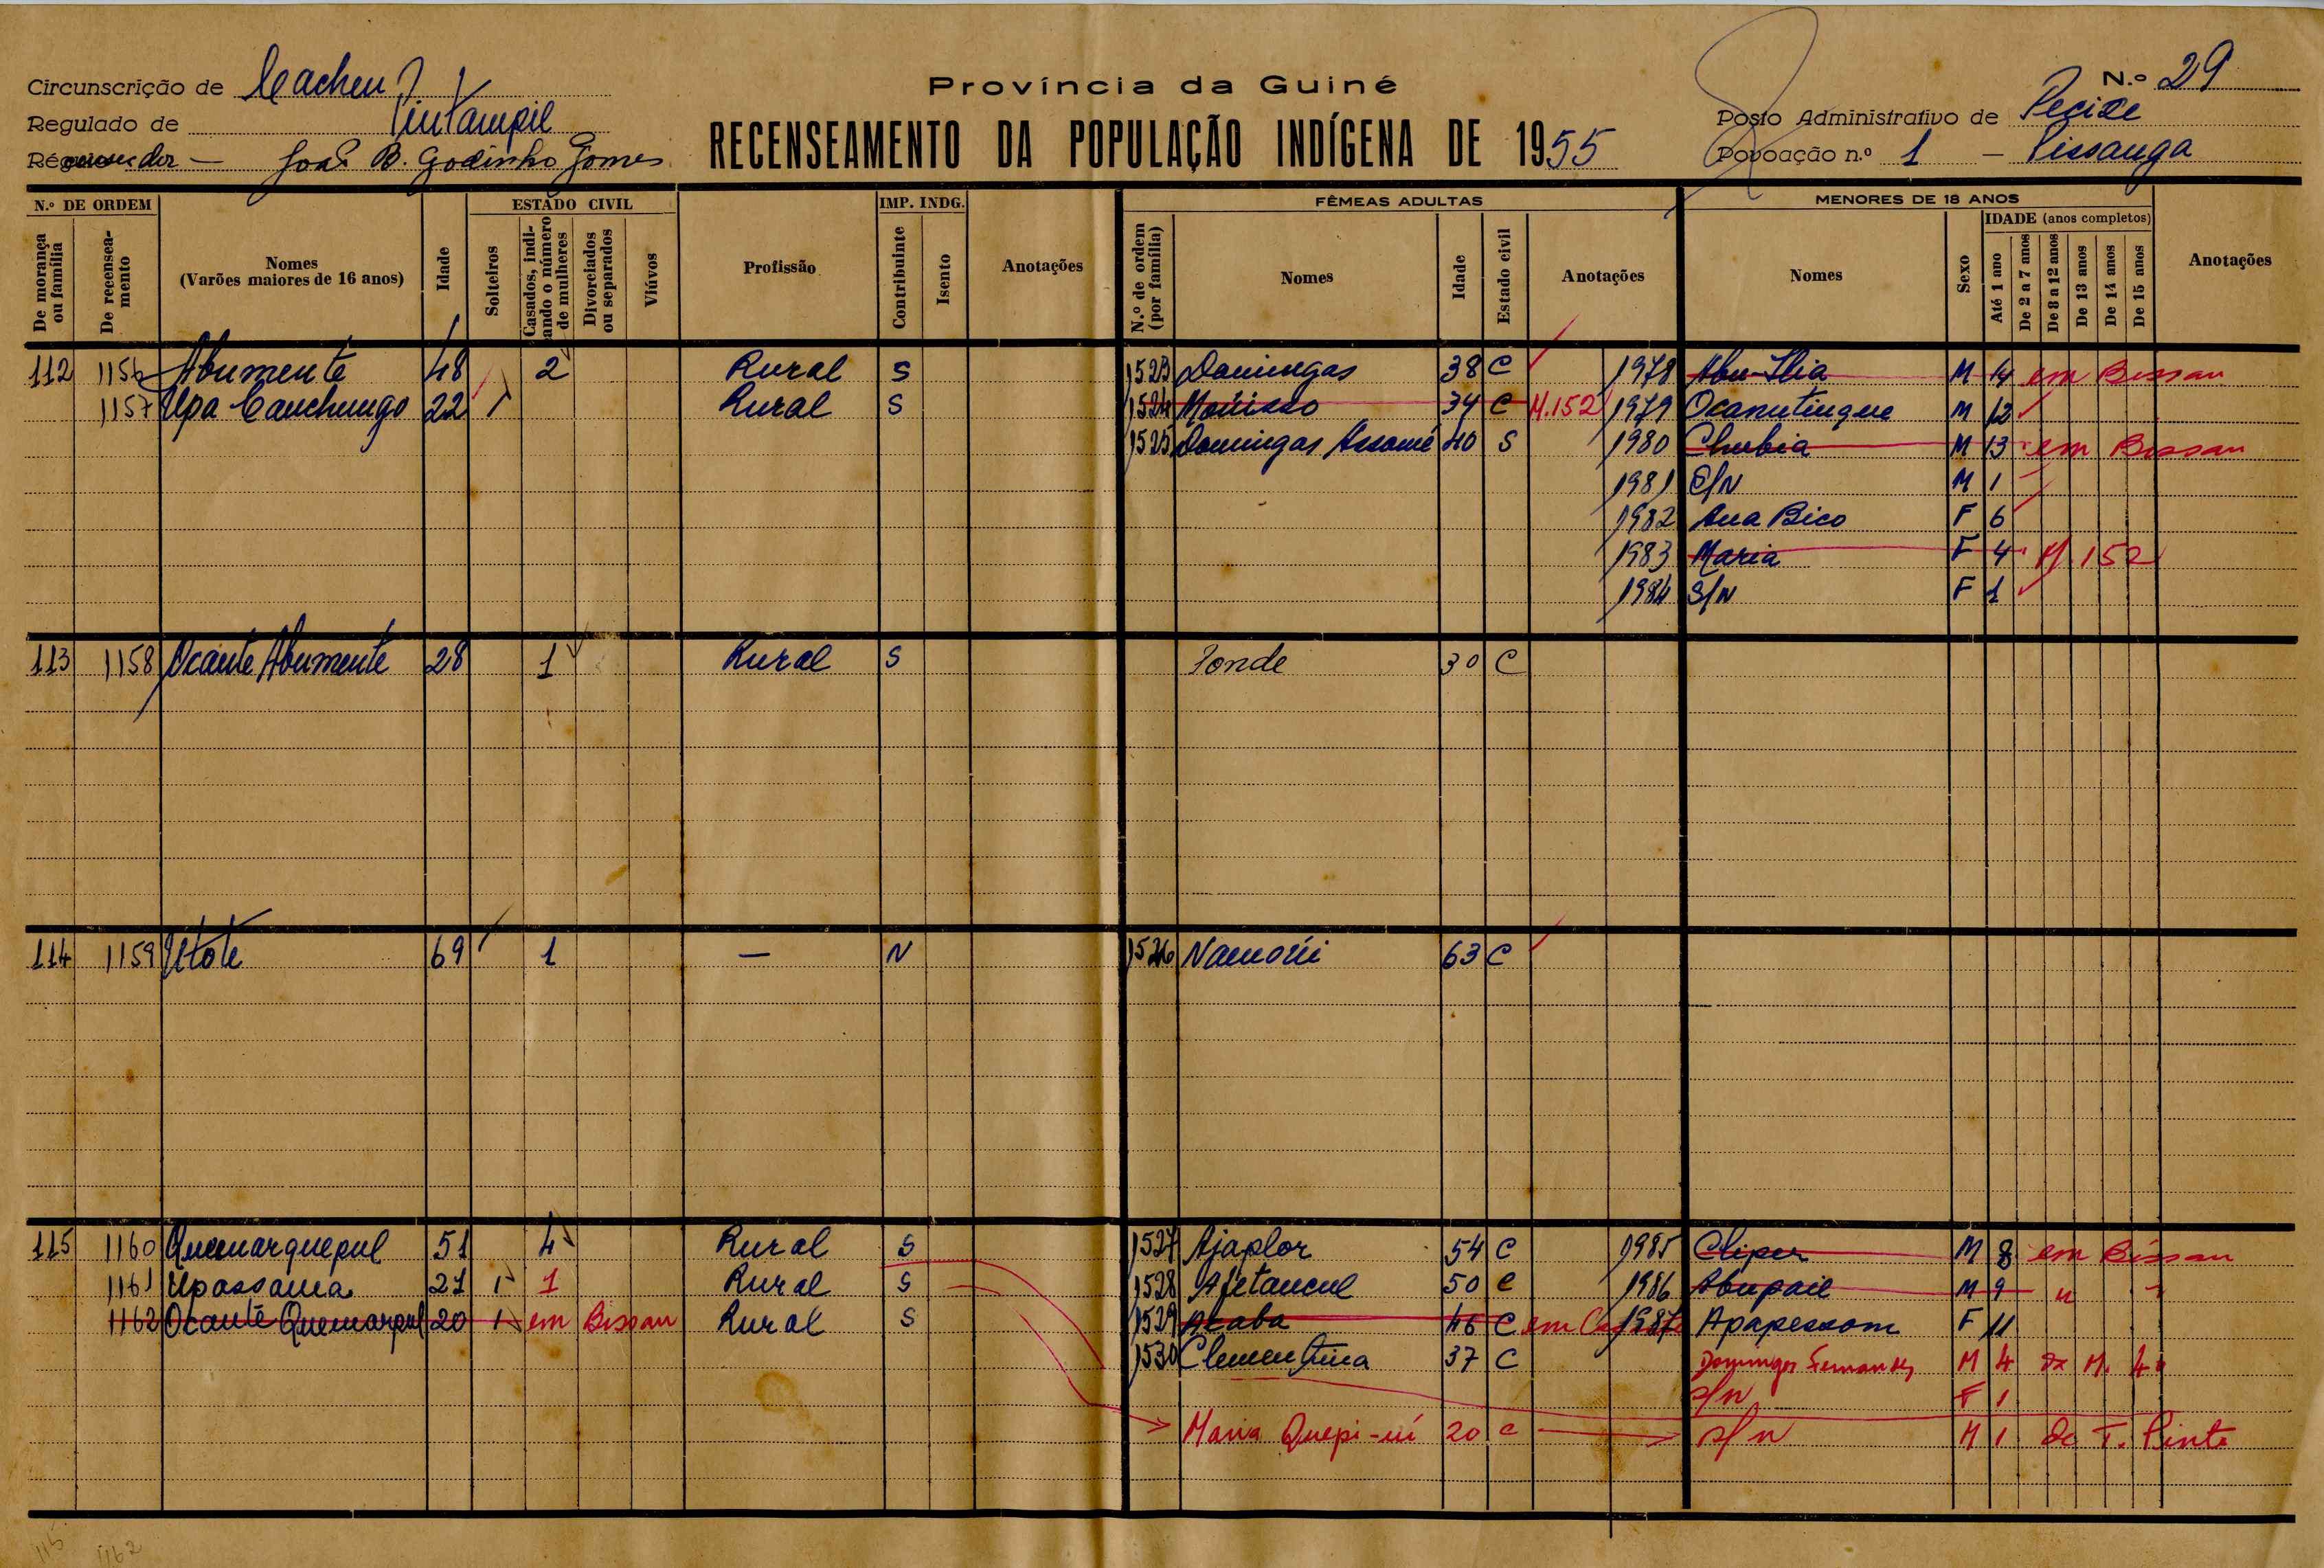 Circunscrição de Cacheu
Província da Guiné
N.º 29
Regulado de Pintampil
Posto Administrativo de Pecixe
RECENSEAMENTO DA POPULAÇÃO INDÍGENA DE 1955
João B. Godinho Gomes
Povoação n.º 1 – Pissanga
N.º DE ORDEM
De morança ou família
De recenseamento
Nomes
(Varões maiores de 16 anos)
Idade
ESTADO CIVIL
Solteiros
Casados, indicando o número de mulheres
Divorciados ou separados
Viúvos
Profissão
IMP. INDG.
Contribuinte
Isento
Anotações
FÊMEAS ADULTAS
N.º de ordem (por família)
Nomes
Idade
Estado civil
Anotações
MENORES DE 18 ANOS
Nomes
Sexo
IDADE (anos completos)
Até 1 ano
De 2 a 7 anos
De 8 a 12 anos
De 13 anos
De 14 anos
De 15 anos
Anotações
112 1156 Abumente 48 2 Rural S 1523 Domingas 38 C 1978 Abu-Ilia M 14 em Bissau
1157 Upa Canchungo 22 1 Rural S 1524 34 C M.152 1979 Ocanutingue M 12
1525 Domingas Assomé 40 S 1980 Chubia M 13 em Bissau
1981 S/N M 1
1982 Ana Bico F 6
1983 Maria F 4 M.152
1984 S/N F 1
113 1158 Ocante Abumente 28 1 Rural S Tonde 30 C
114 1159 Utote 69 1 — N 1526 Namoúi 63 C
115 1160 Quemarquepul 51 4 Rural S 1527 Ajaplor 54 C 1985 Cliper M 8 em Bissau
1161 Upassama 21 1 1 Rural S 1528 Afetancul 50 C 1986 Abupail M 9 " "
1162 Ocante Quemarpul 20 1 em Bissau Rural S 1529 Acaba 46 C em 1987 Apapessom F 11
1530 Clementina 37 C Domingos Fernandes M 4 da M. 4
s/n F 1
Maria Quepi-úi 20 C s/n M 1 de T. Pinto
115 1162